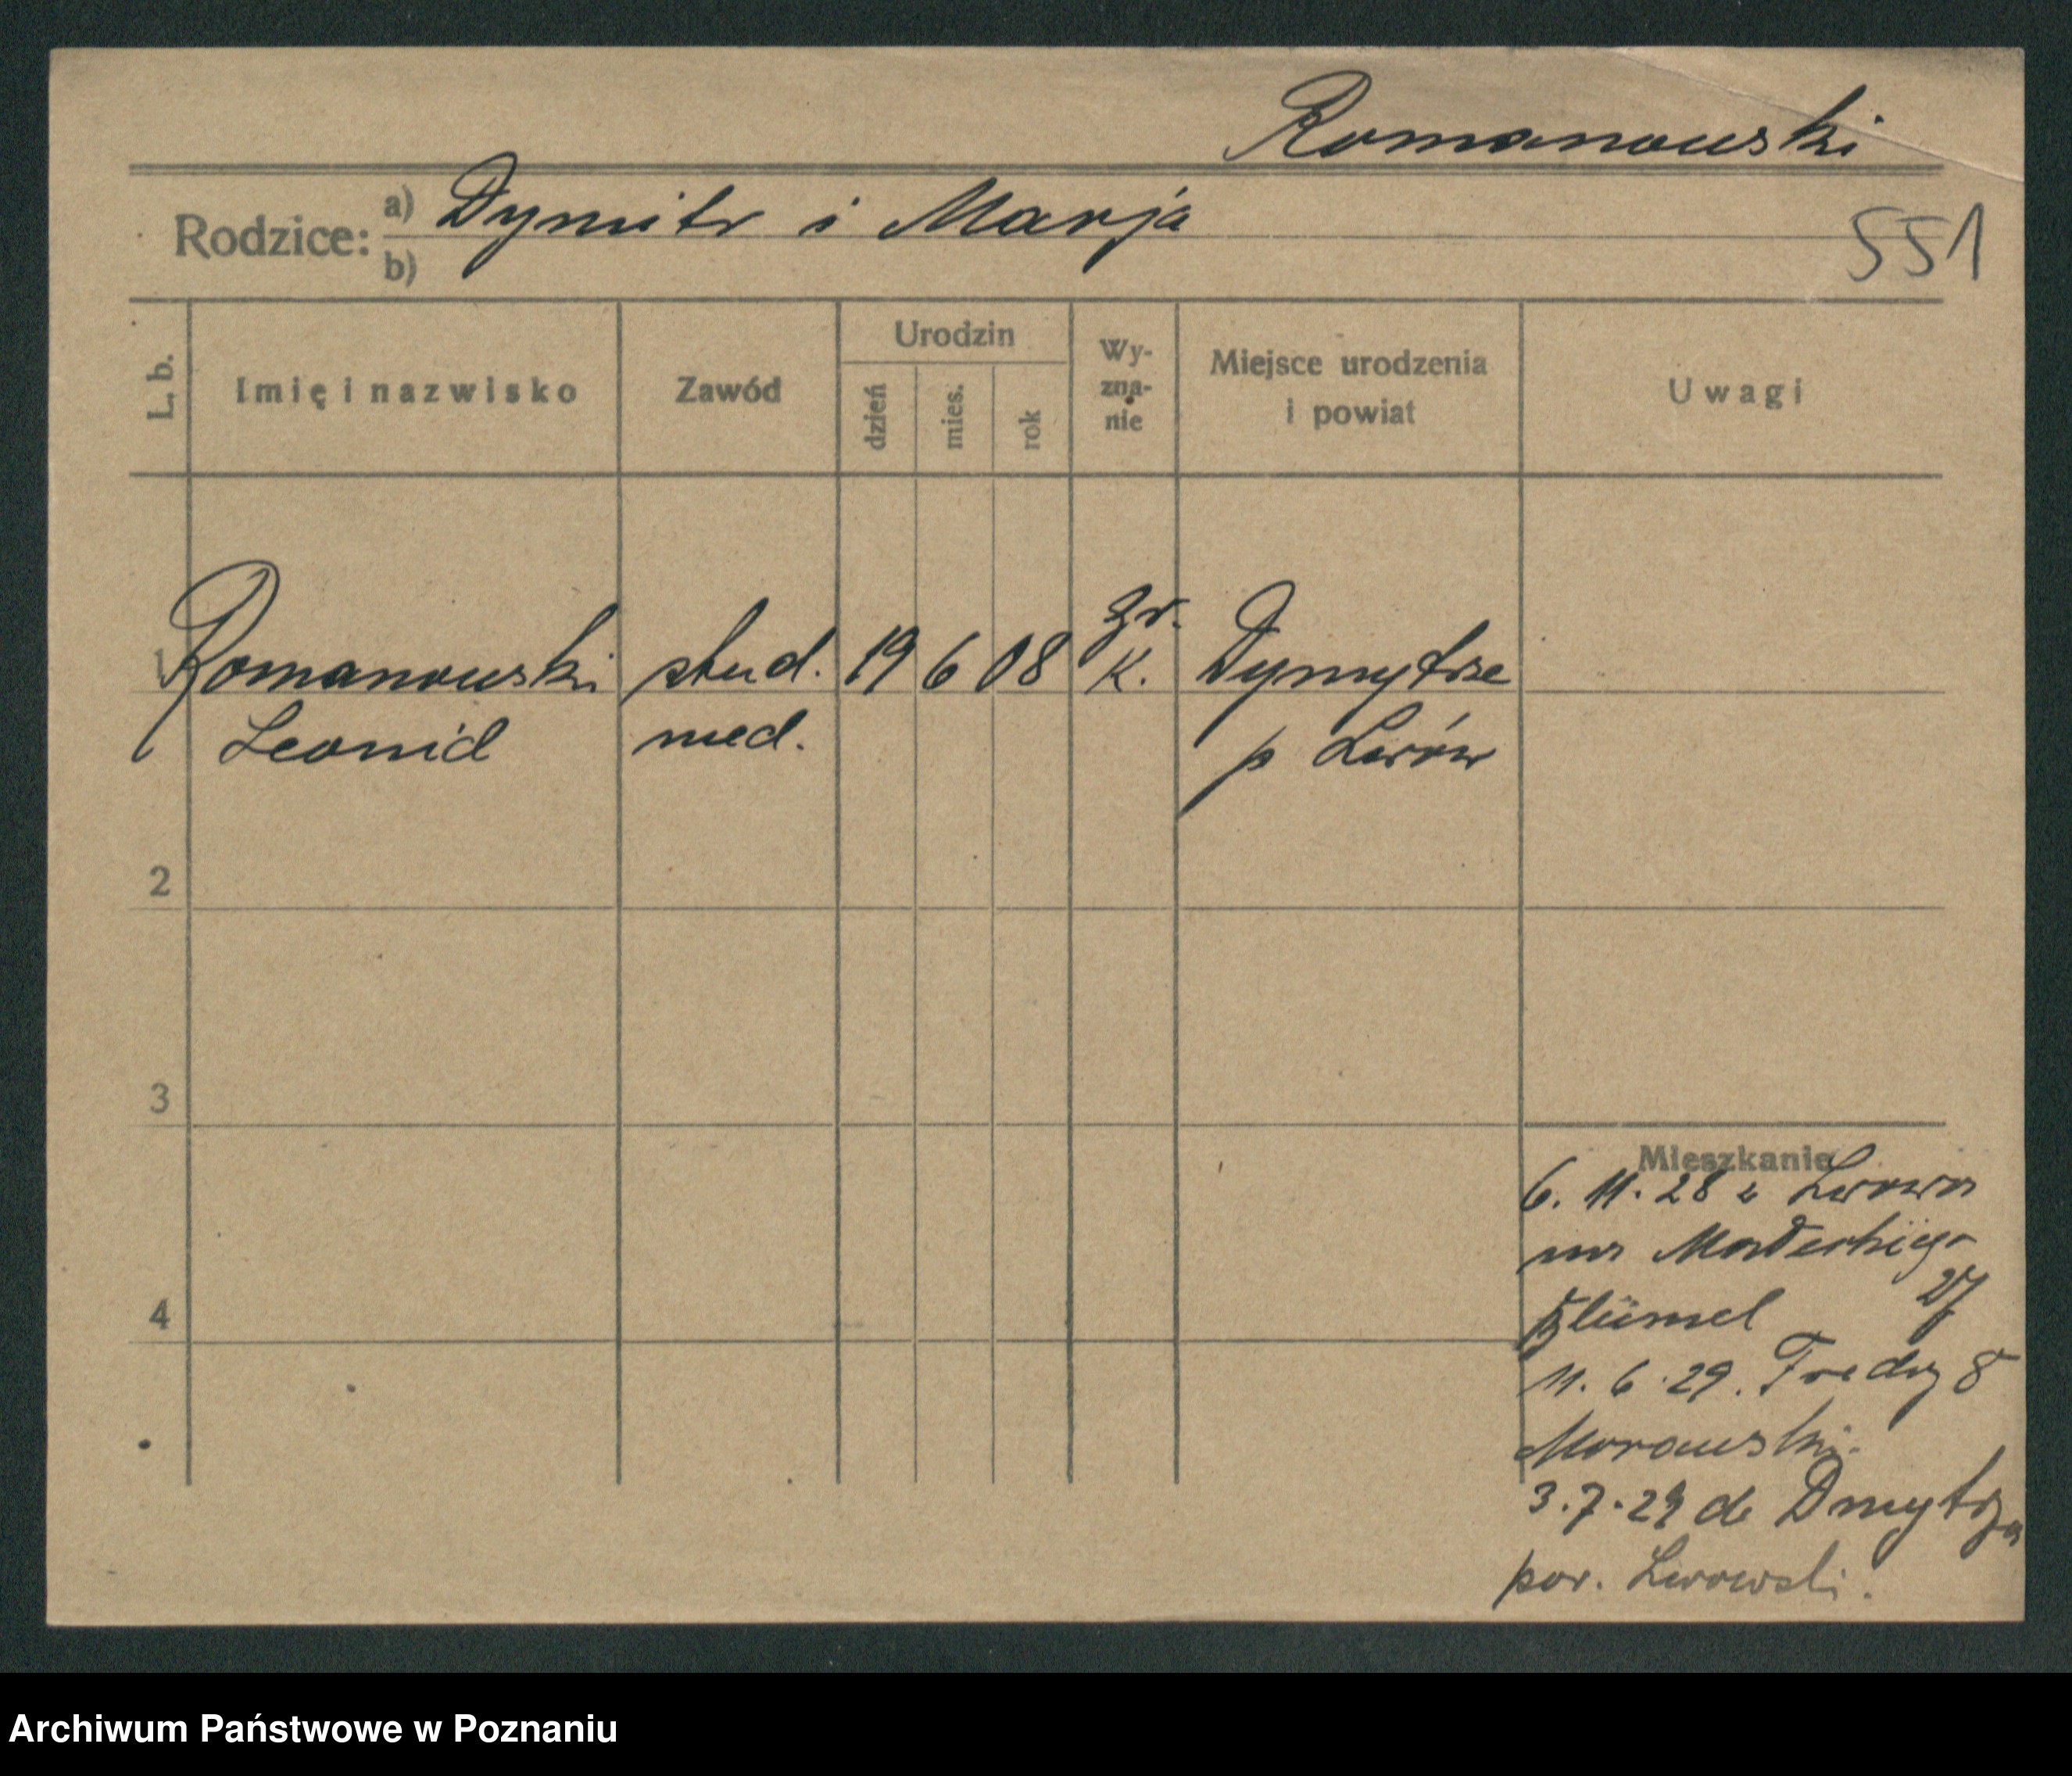 Romanowski
Rodzice: a) Dymitr i Marja
b)
551
L. b.
Imię i nazwisko
Zawód
Urodzin
dzień
mies.
rok
Wy-
zna-
nie
Miejsce urodzenia
i powiat
Uwagi
1 Romanowski stud. 19 6 08 gr. k. Dymytrze
Leonid med. p Lwów
2
3
4
Mieszkanie
6. 11. 28 z Lwowa
27
Blümel
11. 6. 29. Fredry 8
Morawski.
3.7.29 do Dmytrza
pow. Lwowski.
Archiwum Państwowe w Poznaniu